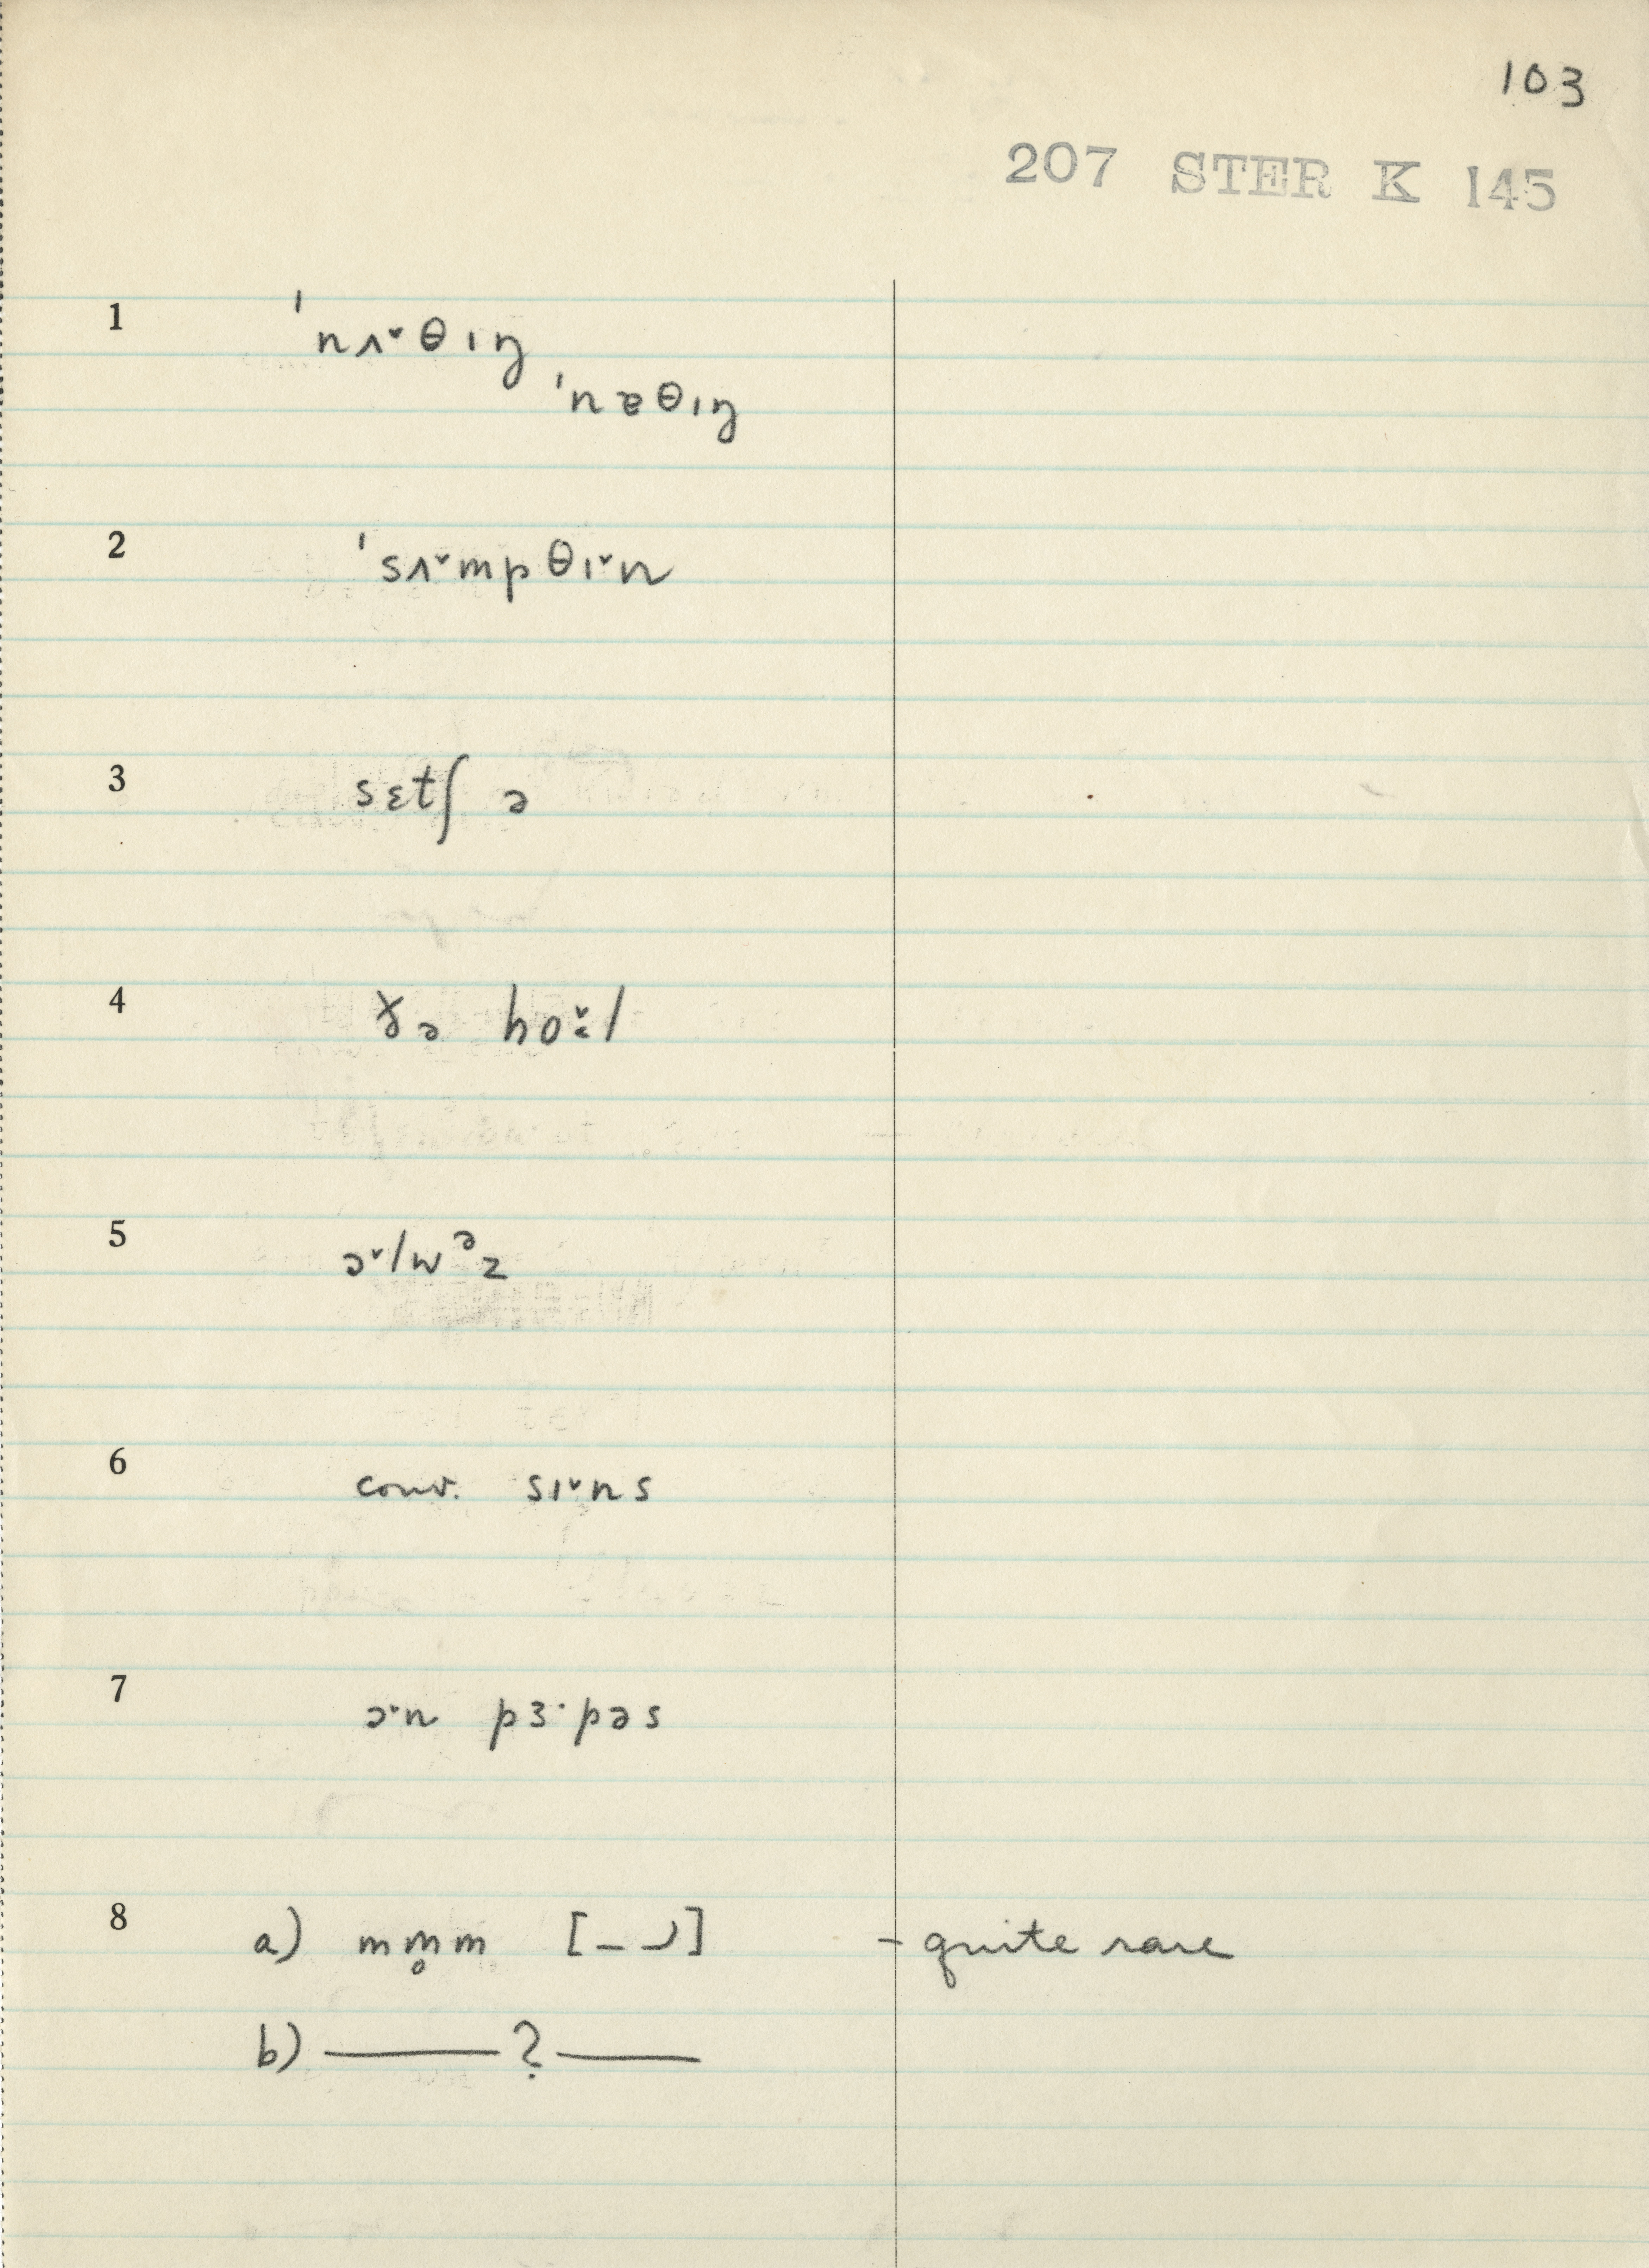 103
207 STER K 145
1 ˈnʌ˅θɪŋ
ˈnɐθɪŋ
2 ˈsʌ˅mpθɪ˅n
3 sɛtʃ ə
4 ðə ho˅ːl
5 ɔ˅lwᵊz
6 conv. sɪ˅ns
7 ɔˑn pɜˑpəs
8 a) mm̥m [– ⌣] - quite rare
b) —— ? ——